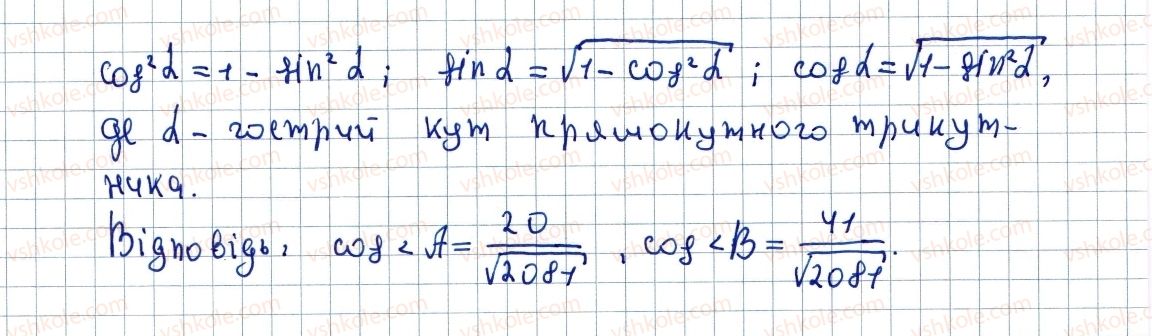 cos²α = 1 - sin²α; sin α = √(1 - cos²α); cos α = √(1 - sin²α),
де α - гострий кут прямокутного трикут-
ника.
Відповідь: cos ∠A = 20/√2081, cos ∠B = 41/√2081.